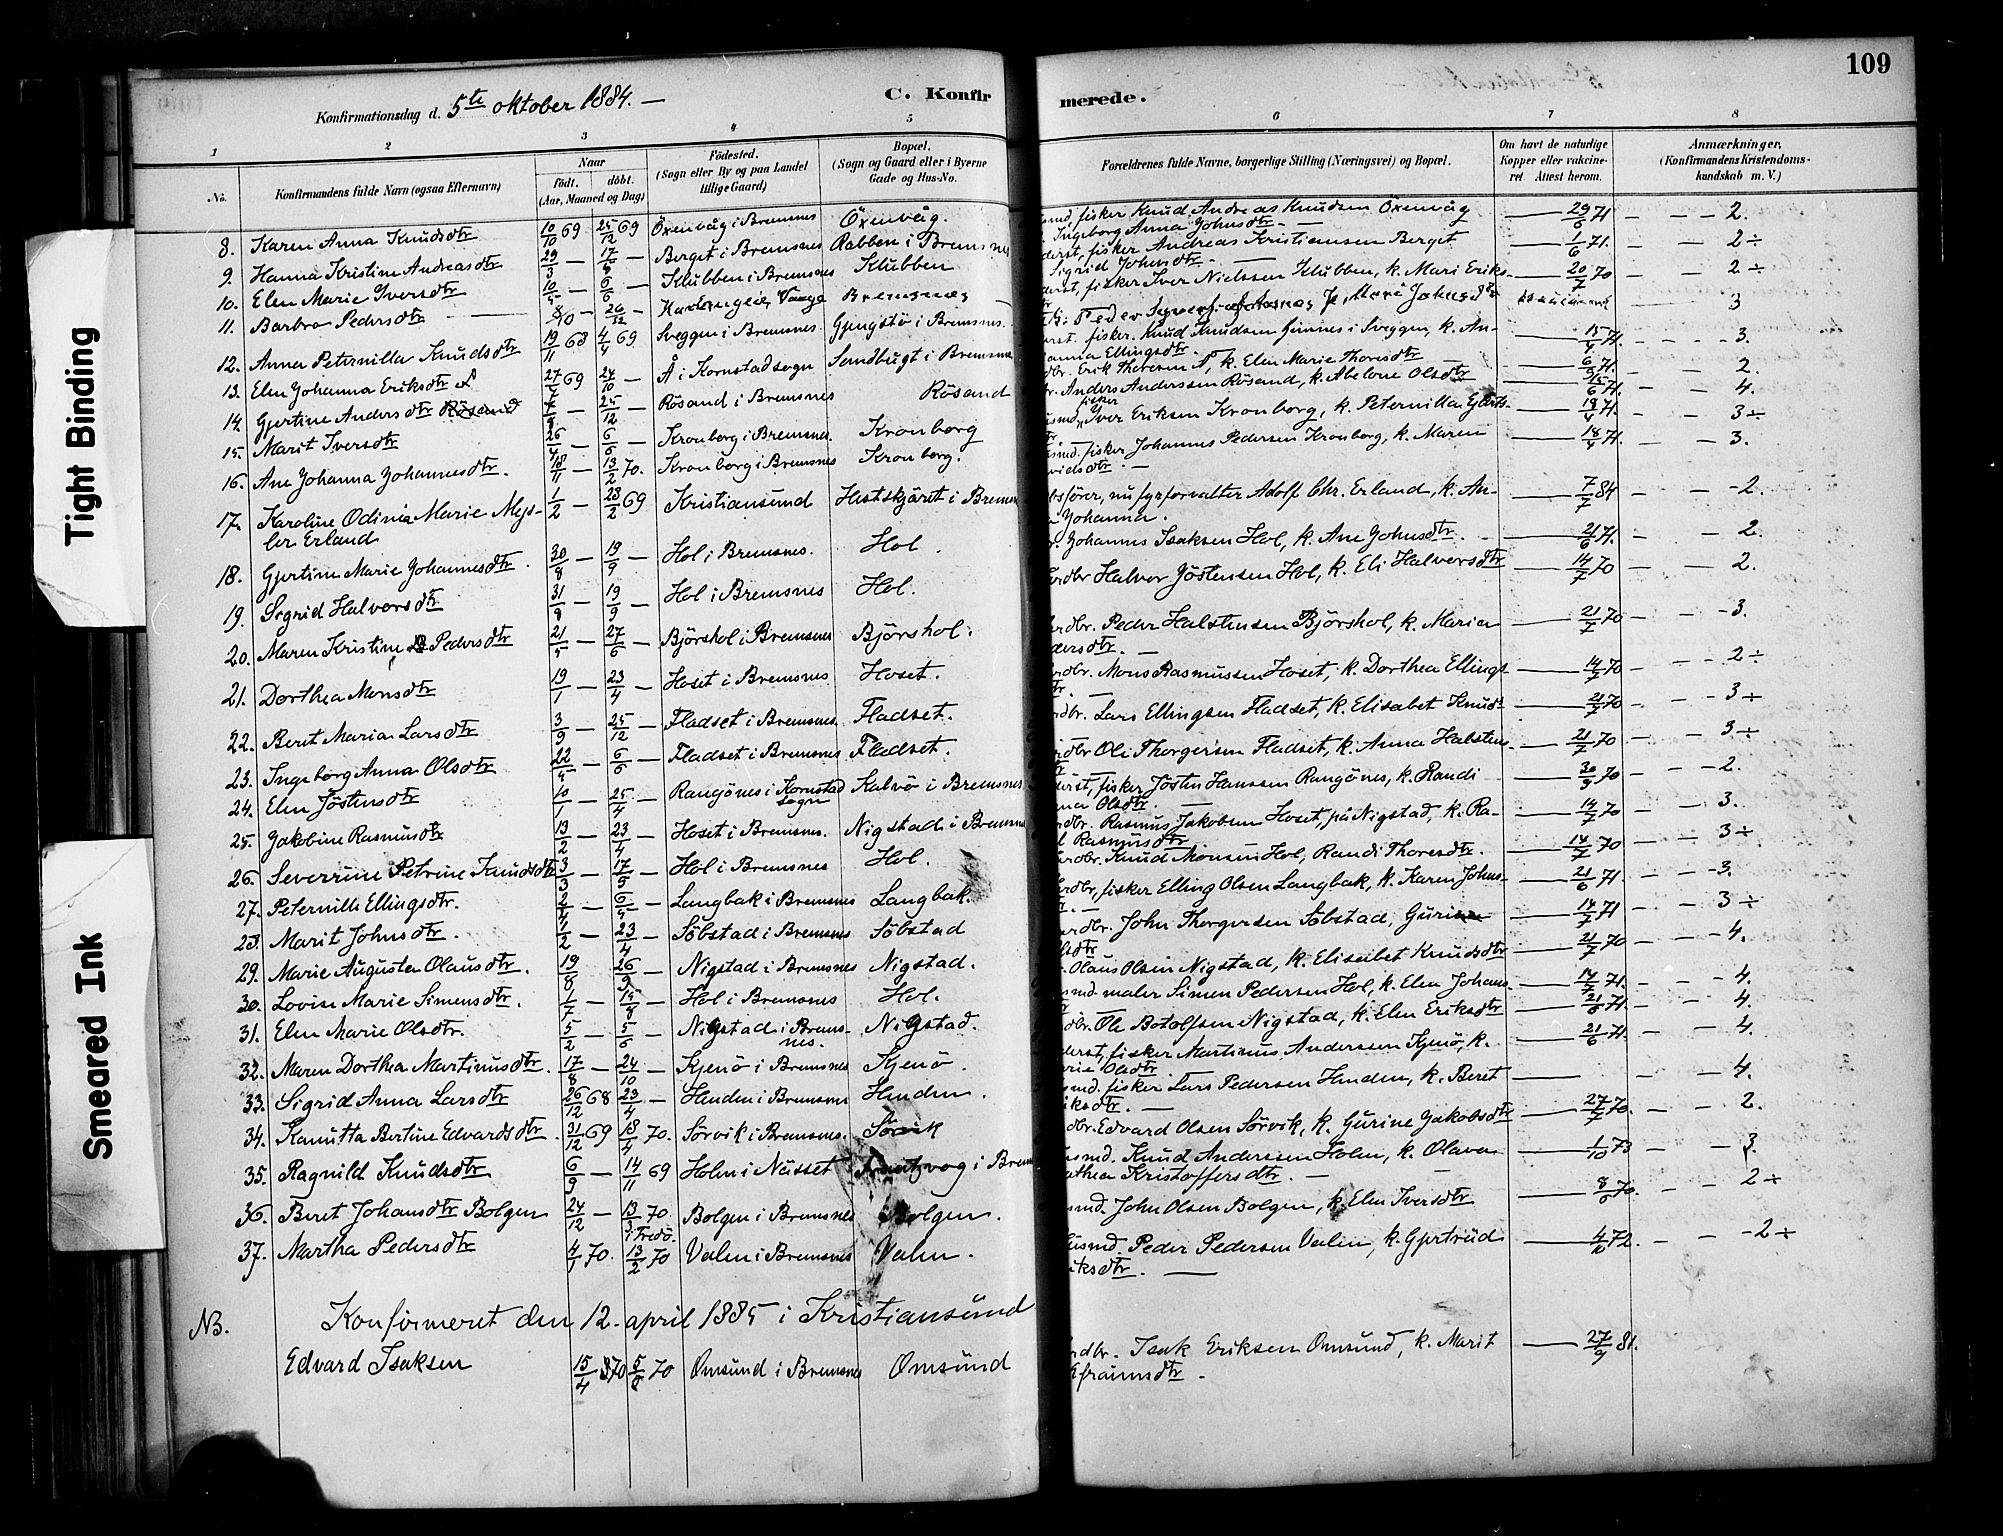 109
Konfirmationsdag d. 5te oktober 1884. —
C. Konfir
merede.
1 2 3 4 5 6 7 8
No.
Konfirmandens fulde Navn (ogsaa Efternavn)
Naar
født. døbt.
(Aar, Maaned og Dag)
Fødested.
(Sogn eller By og paa Landet
tillige Gaard)
Bopæl.
(Sogn og Gaard eller i Byerne
Gade og Hus-No.
Forældrenes fulde Navne, borgerlige Stilling (Næringsvei) og Bopæl.
Om havt de naturlige
Kopper eller vakcine-
ret. Attest herom.
Anmærkninger,
(Konfirmandens Kristendoms-
kundskab m. V.)
8. Karen Anna Knudsdtr 10/10 69 25/12 69 Öxenvåg i Bremsnes Öxenvåg. fisker Knud Andreas Knudsen Öxenvåg 29/6 71 — — 2.
Ingeborg Anna Johnsdtr. —
9. Hanna Kristine Andreasdtr 29/3 — 17/ — Berget i Bremsnes Rabben i Bremsnes fisker Andreas Kristiansen Berget 1/6 71. — — 2 ÷
Sigrid Johnsdtr. —
10. Elen Marie Iversdtr 10/5 — 6/6 — Klubben i Bremsnes Klubben fisker Iver Nielssen Klubben, k. Mari Eriks- 20/7 70 — — 2 ÷
11. Barbro Pedersdtr — 26/12 — Bremsnes 3
12. Anna Peternilla Knudsdtr 19/11 68 4/4 69 Sveggen i Bremsnes Gjengstö i Bremsnes. fisker. Knud Knudsen Ginnes i Sveggen, k. An- 15/4 71. — — 3.
anna Ellingsdtr. —
13. Elen Johanna Eriksdtr Å 27/7 69 24/10 — Å i Kornstad sogn Sandbugt i Bremsnes Erik Thoresen Å, k. Elen Marie Thorsdtr — 6/ 71. — — 2.
14. Gjertine Andersdtr Rösand 7/8 — 25/12 — Rösand i Bremsnes Rösand Anders Anderssen Rösand, k. Abelone Olsdtr 15/6 71. — — 4.
15. Marit Iversdtr 26/4 — 6/6 — Kronborg i Bremsnes. Kronborg fisker Iver Eriksen Kronborg, k. Peternilla Ejlerts- 18/4 71. — — 3 ÷
16. Ane Johanna Johannesdtr. 18/11 — 13/2 70. Kronborg i Bremsnes Kronborg. fisker Johannes Pedersen Kronborg, k. Maren 18/4 71. — — 3.
vidsdtr. —
17. Karoline Odinia Marie Mejs- 1/2 — 23/2 69 Kristiansund Hestskjäret i Bremsn nu fyrforvalter Adolf Chr. Erland, k. An- 7/7 84 — — 2.
ler Erland
Johanna.
18. Gjertine Marie Johannesdtr. 30/8 — 19/9 — Hol i Bremsnes. Hol. Johannes Isaksen Hol, k. Ane Johnsdtr. 21/6 71. — — 2.
19. Sigrid Halvorsdtr 31/8 — 19/9 — Hol i Bremsnes Hol. Halvor Jöstensen Hol, k. Eli Halvorsdtr 14/7 70 — — 2.
20. Maren Kristine Pedersdtr 21/5 — 27/6 — Björshol i Bremsnes Björshol. Peder Halstensen Björshol, k. Maria 21/7 70 — — 3.
dersdtr. —
21. Dorthea Monsdtr 19/1 — 23/4 — Hoset i Bremsnes. Hoset. Mons Rasmussen Hoset, k. Dorthea Ellings- 14/7 70 — — 2 ÷
22. Beret Maria Larsdtr 3/9 — 25/12 — Fladset i Bremsnes. Fladset. Lars Ellingsen Fladset, k. Elisabet Knuds- 21/7 70 — — 3 ÷
23. Ingeborg Anna Olsdtr 22/5 — 6/6 — Fladset i Bremsnes Fladset. Ole Thorgersen Fladset, k. Anna Halstens- 21/7 70 — — 3 ÷
24. Elen Jöstensdtr 10/1 — 25/4 — Rangönes i Kornstad sogn Kalvö i Bremsnes fisker Jöstin Hanssen Rangönes, k. Randi 30/9 70 — — 2.
Olsdtr. —
25. Jakobine Rasmusdtr 13/2 — 23/4 — Hoset i Bremsnes. Nigstad i Bremsne Rasmus Jakobsen Hoset, på Nigstad, k. Ra- 14/7 70 — — 3.
Rasmusdtr
26. Severrine Petrine Knudsdtr 3/3 — 17/5 — Hol i Bremsnes Hol. Knud Monsen Hol, Randi Thoresdtr. 14/7 70 — — 3 ÷
27. Peternille Ellingsdtr. 2/4 — 6/5 — Langbak i Bremsnes Langbak. fisker Elling Olsen Langbak, k. Karen Johns- 21/6 71 — — 3.
28. Marit Johnsdtr. 1/2 — 23/4 — Söbstad i Bremsnes Söbstad John Thorgersen Söbstad, Gurine 14/7 71 — — 3 ÷
29. Marie Augusta Olausdtr. 19/8 — 26/9 — Nigstad i Bremsnes Nigstad. Olaus Olsen Nigstad, k. Elisabet Knudsdtr 21/7 70 — — 4.
30. Lovise Marie Simensdtr. 1/7 — 15/8 — Hol i Bremsnes Hol. maler Simen Pedersen Hol, k. Elen Johans- 14/7 71. — — 4.
31. Elen Marie Olsdtr. 5/2 — 5/6 — Nigstad i Brems- Nigstad. Ole Botolfsen Nigstad, k. Elen Eriksdtr 21/6 71. — — 4.
nes.
32. Maren Dorthea Martinusdtr. 17/8 — 24/10 — Kjenö i Bremsnes Kjenö. fisker Martinus Anderssen Kjenö, k. 21/6 71. — — 4.
Olsdtr
33. Sigrid Anna Larsdtr 26/12 68 23/4 — Henden i Bremsnes Henden. fisker Lars Pedersen Henden, k. Beret — 4.
iksdtr. —
34. Kanutta Bertine Edvardsdtr. 31/12 69 18/4 70. Sörvik i Bremsnes. Sörvik Edvard Olsen Sörvik, k. Gurine Jakobsdtr 27/7 70. — — 2.
35. Ragnild Knudsdtr 6/9 — 14/11 69 Holm i Nässet i Brem Knud Anderssen Holm, k. Olava 1/10 73 — 3.
athea Kristoffersdtr. —
36. Beret Johansdtr Bolgen 24/12 — 13/3 70. Bolgen i Bremsnes Bolgen. John Olsen Bolgen, k. Elen Iversdtr 8/6 70. — — 2 ÷
i Fredö.
37. Martha Pedersdtr 4/1 70. 13/2 70 Valen i Bremsnes Valen. Peder Pedersen Valen, k. Gjertrud 4/10 72. — — 2 ÷
iksdtr. —
NB. Konfirmeret den 12. april 1885 i Kristiansund
Edvard Isaksen 15/4 70 5/8 70 Omsund i Bremsnes Omsund Isak Eriksen Omsund, k. Marit 27/9 81.
Efraimsdtr.
Tight Binding
Smeared Ink